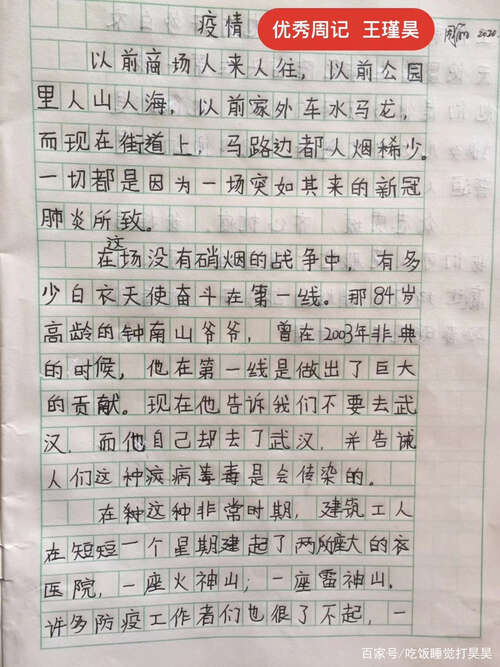 优秀周记 王瑾昊
疫情
2020
以前商场人来人往，以前公园
里人山人海，以前家外车水马龙，
而现在街道上，马路边都人烟稀少。
一切都是因为一场突如其来的新冠
肺炎所致。
在这场没有硝烟的战争中，有多
少白衣天使奋斗在第一线。那84岁
高龄的钟南山爷爷，曾在2003年非典
的时候，他在第一线是做出了巨大
的贡献。现在他告诉我们不要去武
汉，而他自己却去了武汉，并告诫
人们这种疾病毒是会传染的。
在种这种非常时期，建筑工人
在短短一个星期建起了两所座大的
医院，一座火神山；一座雷神山。
许多防疫工作者们也很了不起，一
百家号/吃饭睡觉打昊昊